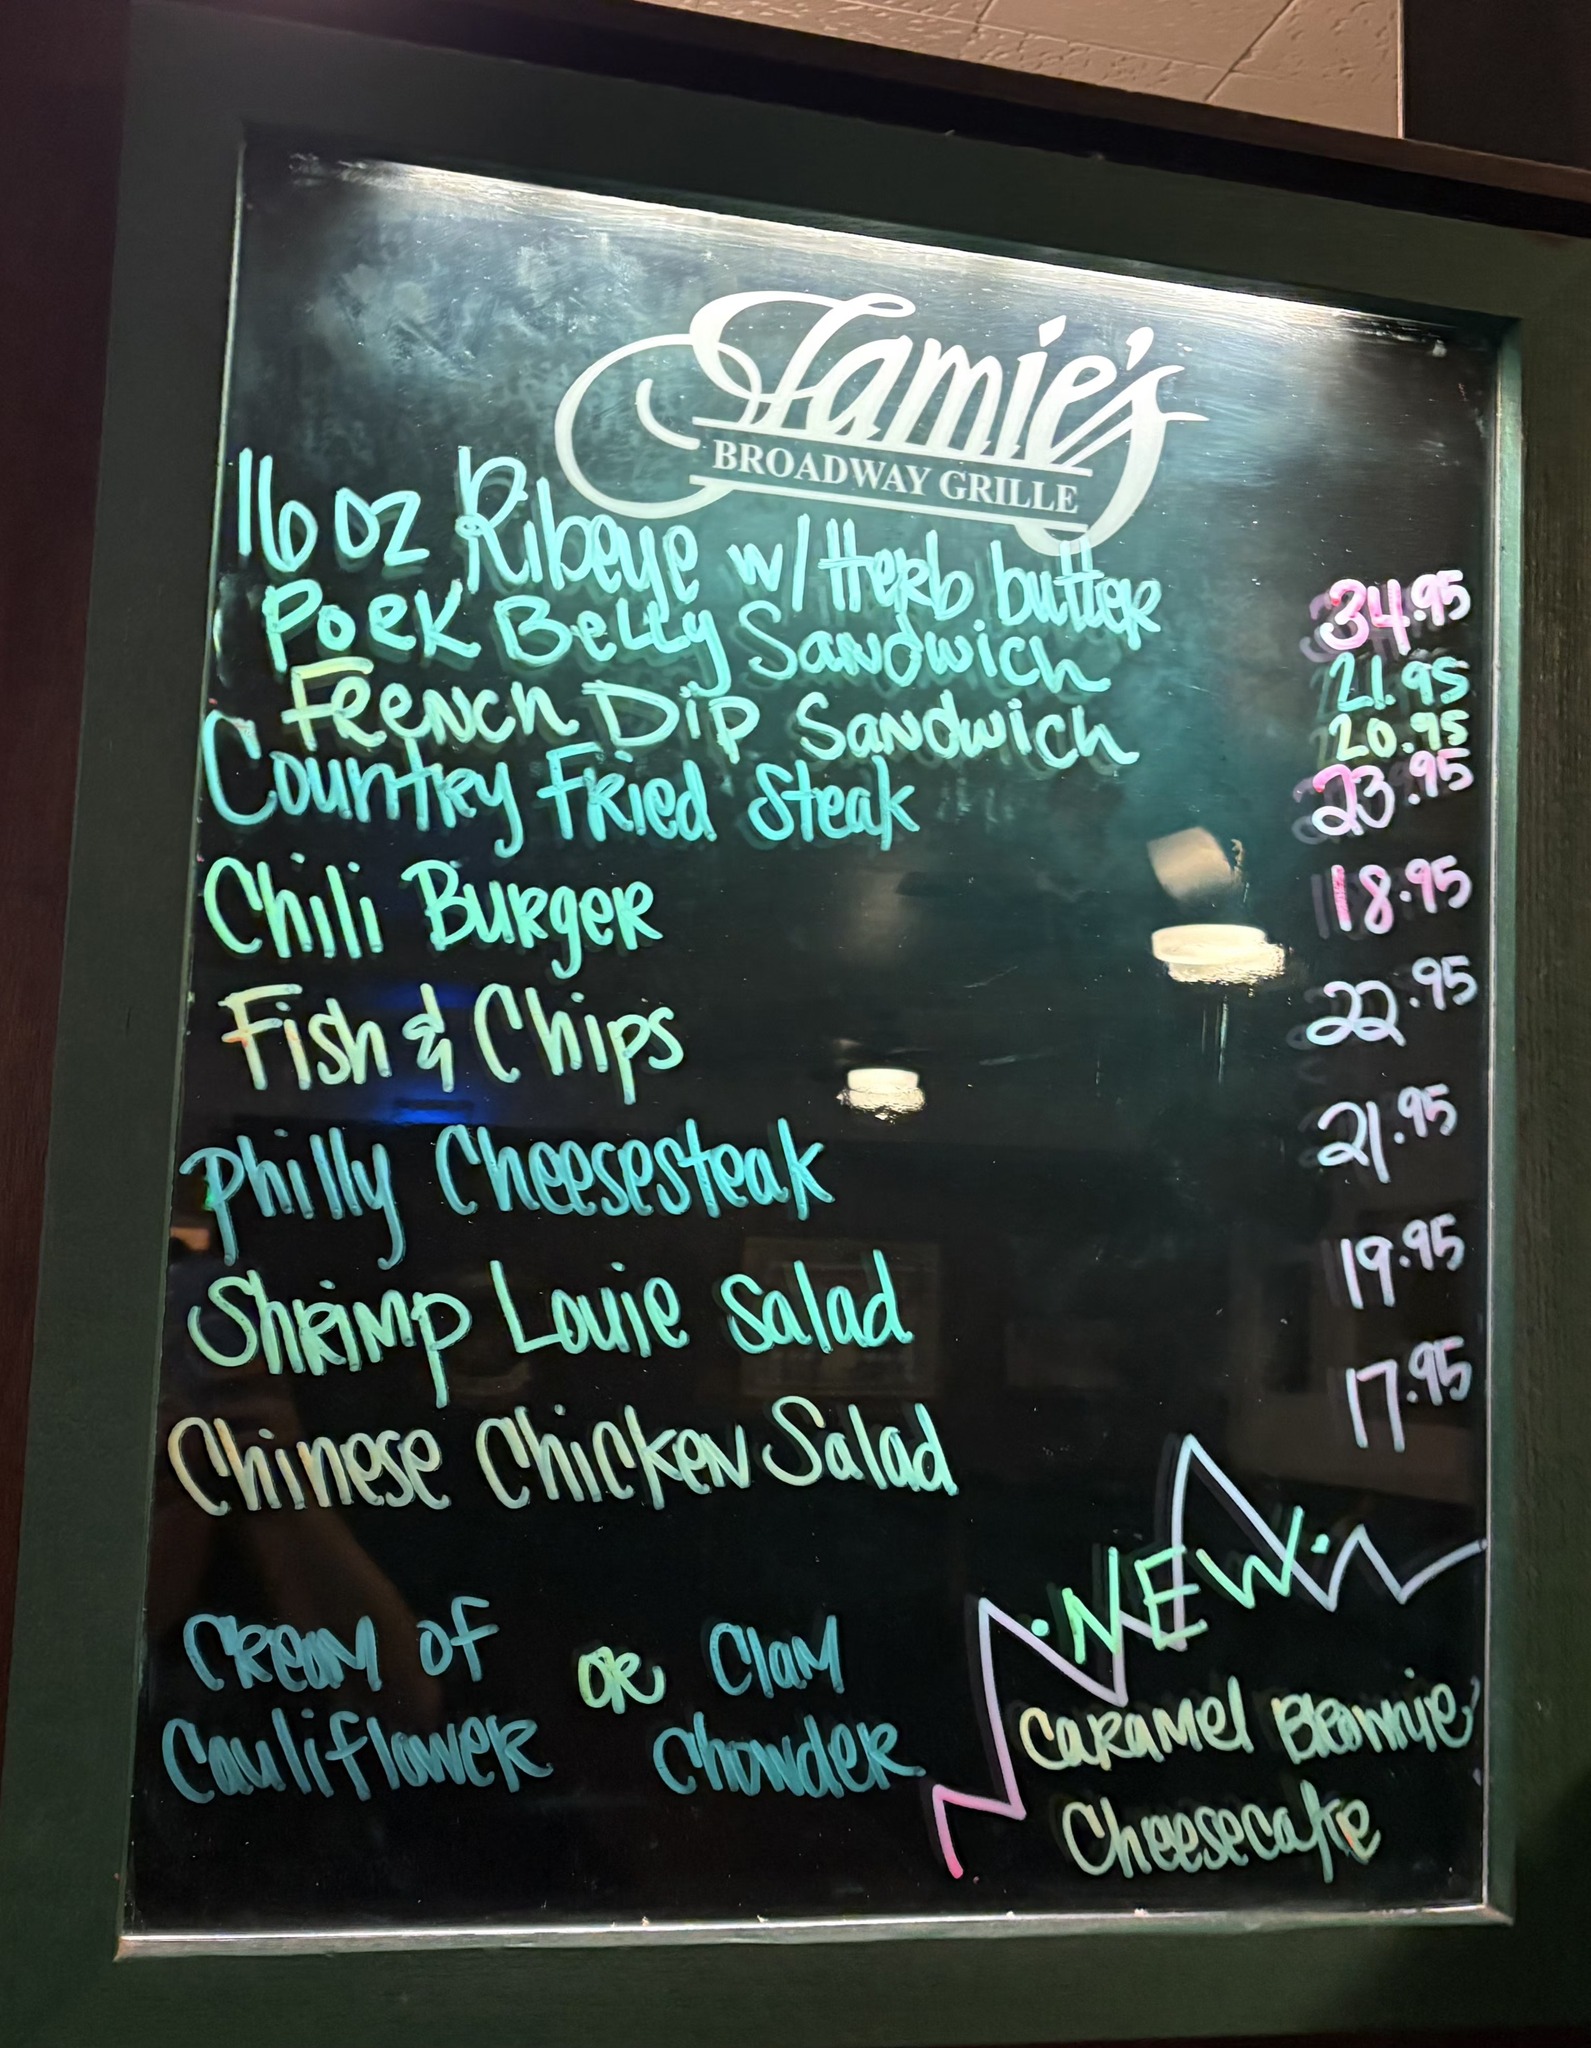 Jamie's
BROADWAY GRILLE
16 oz Ribeye w/ Herb butter 34.95
Pork Belly Sandwich 21.95
French Dip Sandwich 20.95
Country Fried Steak 23.95
Chili Burger 18.95
Fish & Chips 22.95
Philly Cheesesteak 21.95
Shrimp Louie Salad 19.95
Chinese Chicken Salad 17.95
Cream of or Clam
Cauliflower Chowder
·NEW·
Caramel Brownie
Cheesecake